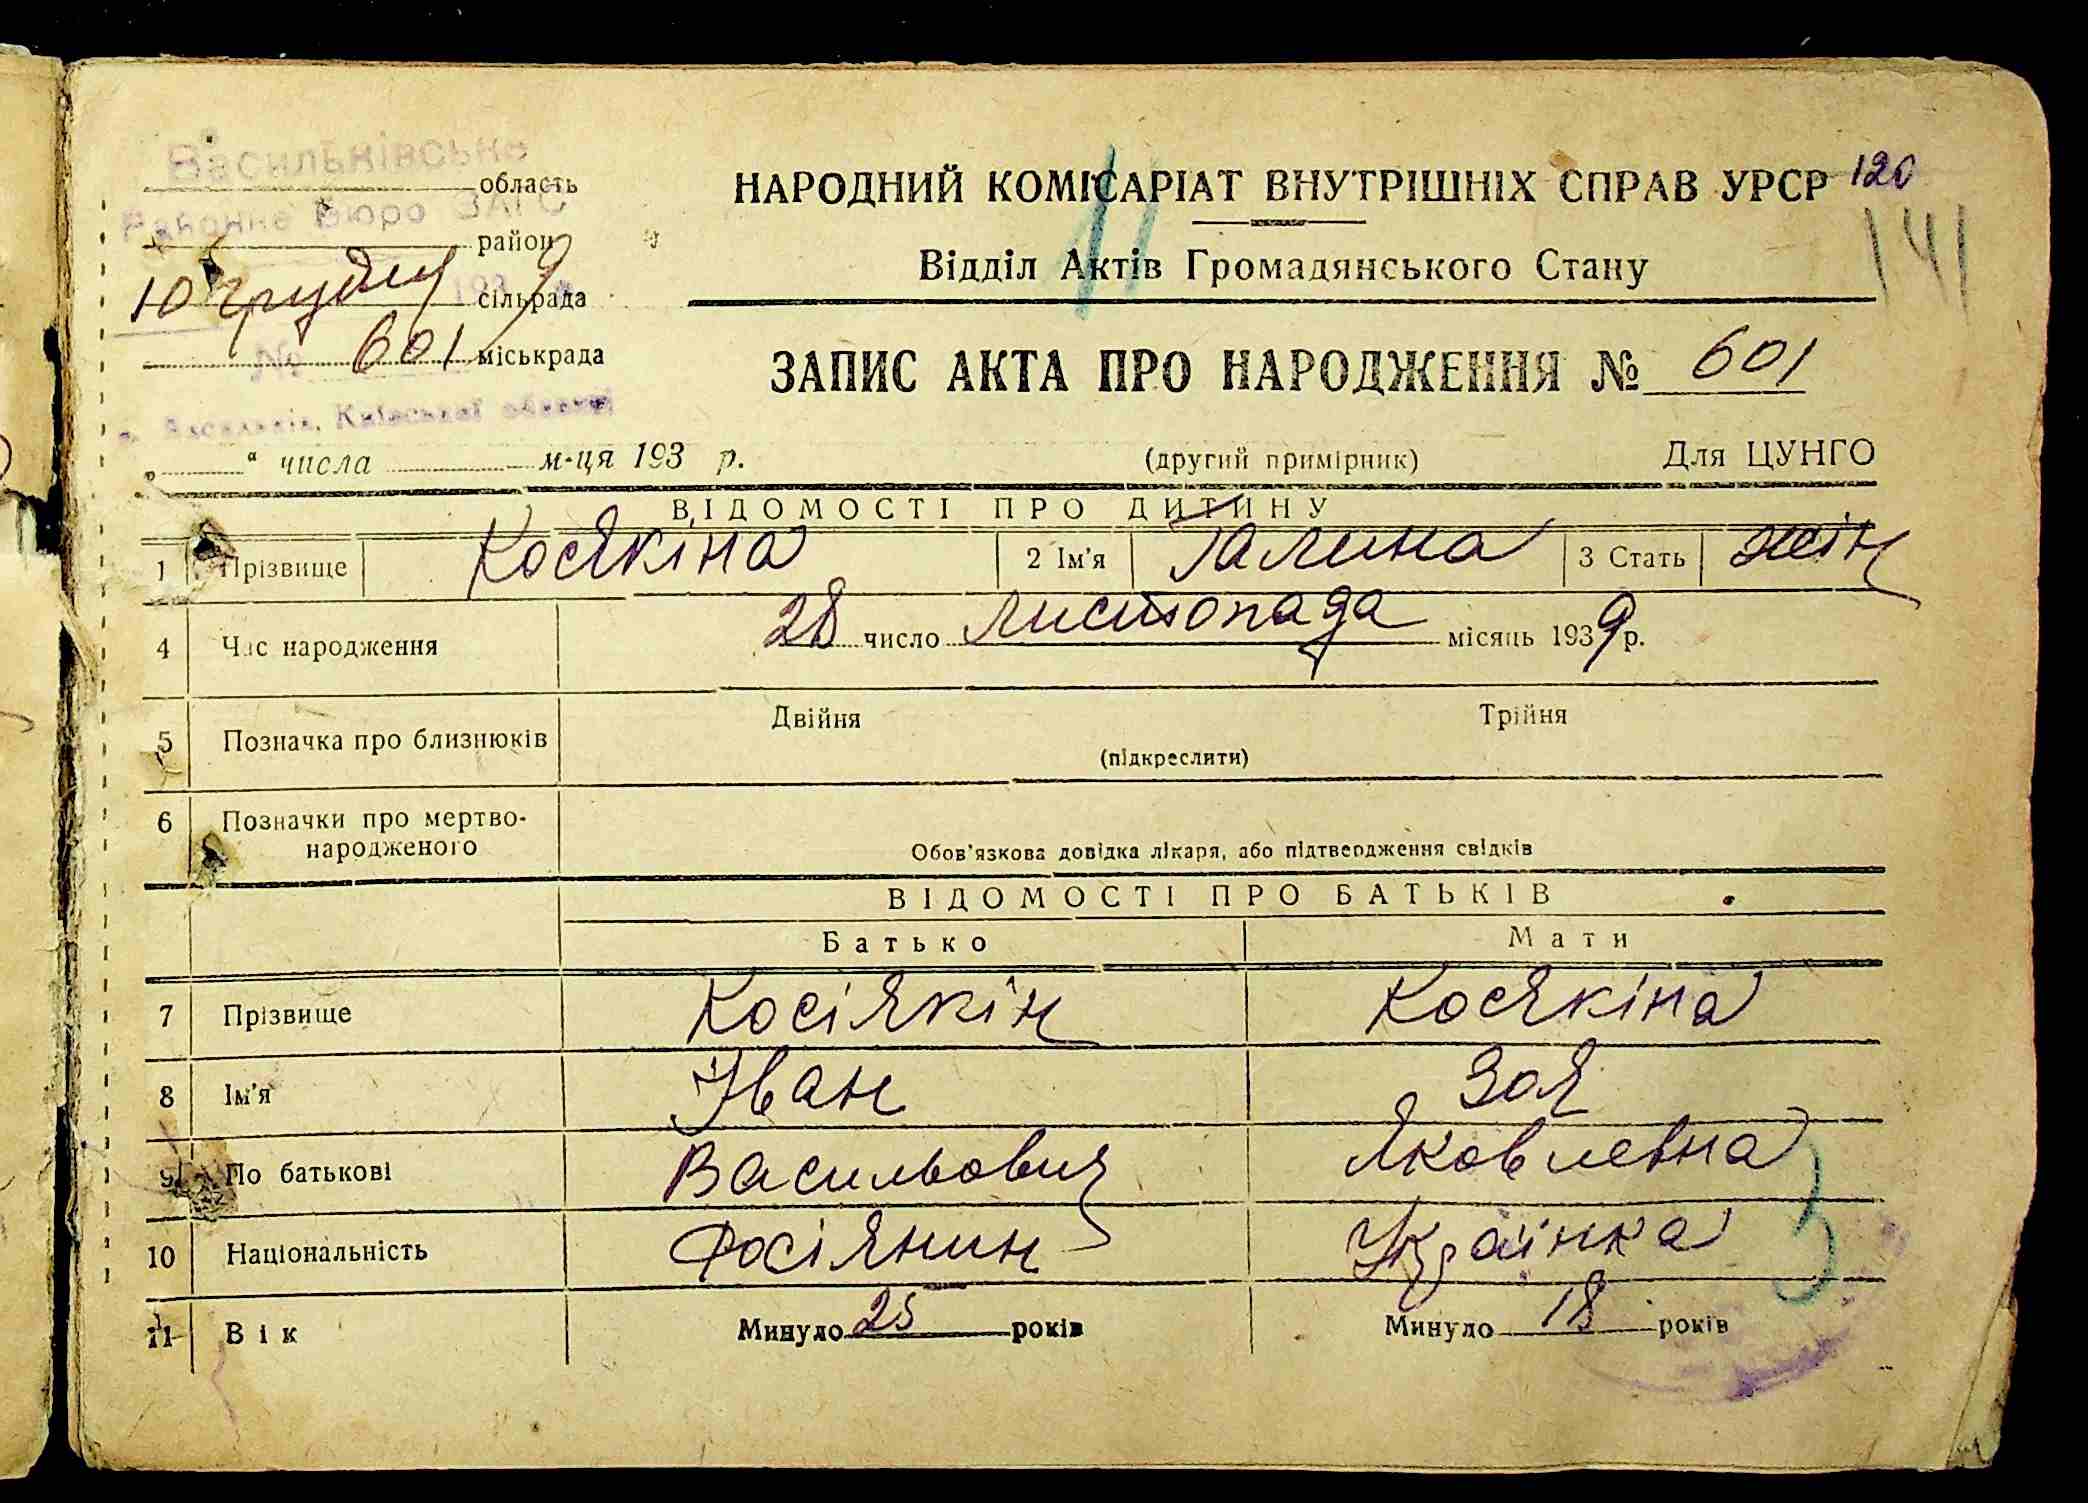 Васильківське
область
Районне Бюро ЗАГС
район
10 грудня 1939
сільрада
№ 601 міськрада
м. Васильків, Київської області
НАРОДНИЙ КОМІСАРІАТ ВНУТРІШНІХ СПРАВ УРСР 120
141
Відділ Актів Громадянського Стану
ЗАПИС АКТА ПРО НАРОДЖЕННЯ № 601
„ “ числа м-ця 193 р. (другий примірник) Для ЦУНГО
ВІДОМОСТІ ПРО ДИТИНУ
1 Прізвище Косякіна 2 Ім'я Галина 3 Стать жін
4 Час народження 28 число листопада місяць 1939 р.
5 Позначка про близнюків Двійня Трійня
(підкреслити)
6 Позначки про мертво-
народженого
Обов'язкова довідка лікаря, або підтвердження свідків
ВІДОМОСТІ ПРО БАТЬКІВ
Батько Мати
7 Прізвище Косіякін Косякіна
8 Ім'я Іван Зоя
9 По батькові Васильович Яковлевна
10 Національність Росіянин Українка
11 Вік Минуло 25 років Минуло 18 років